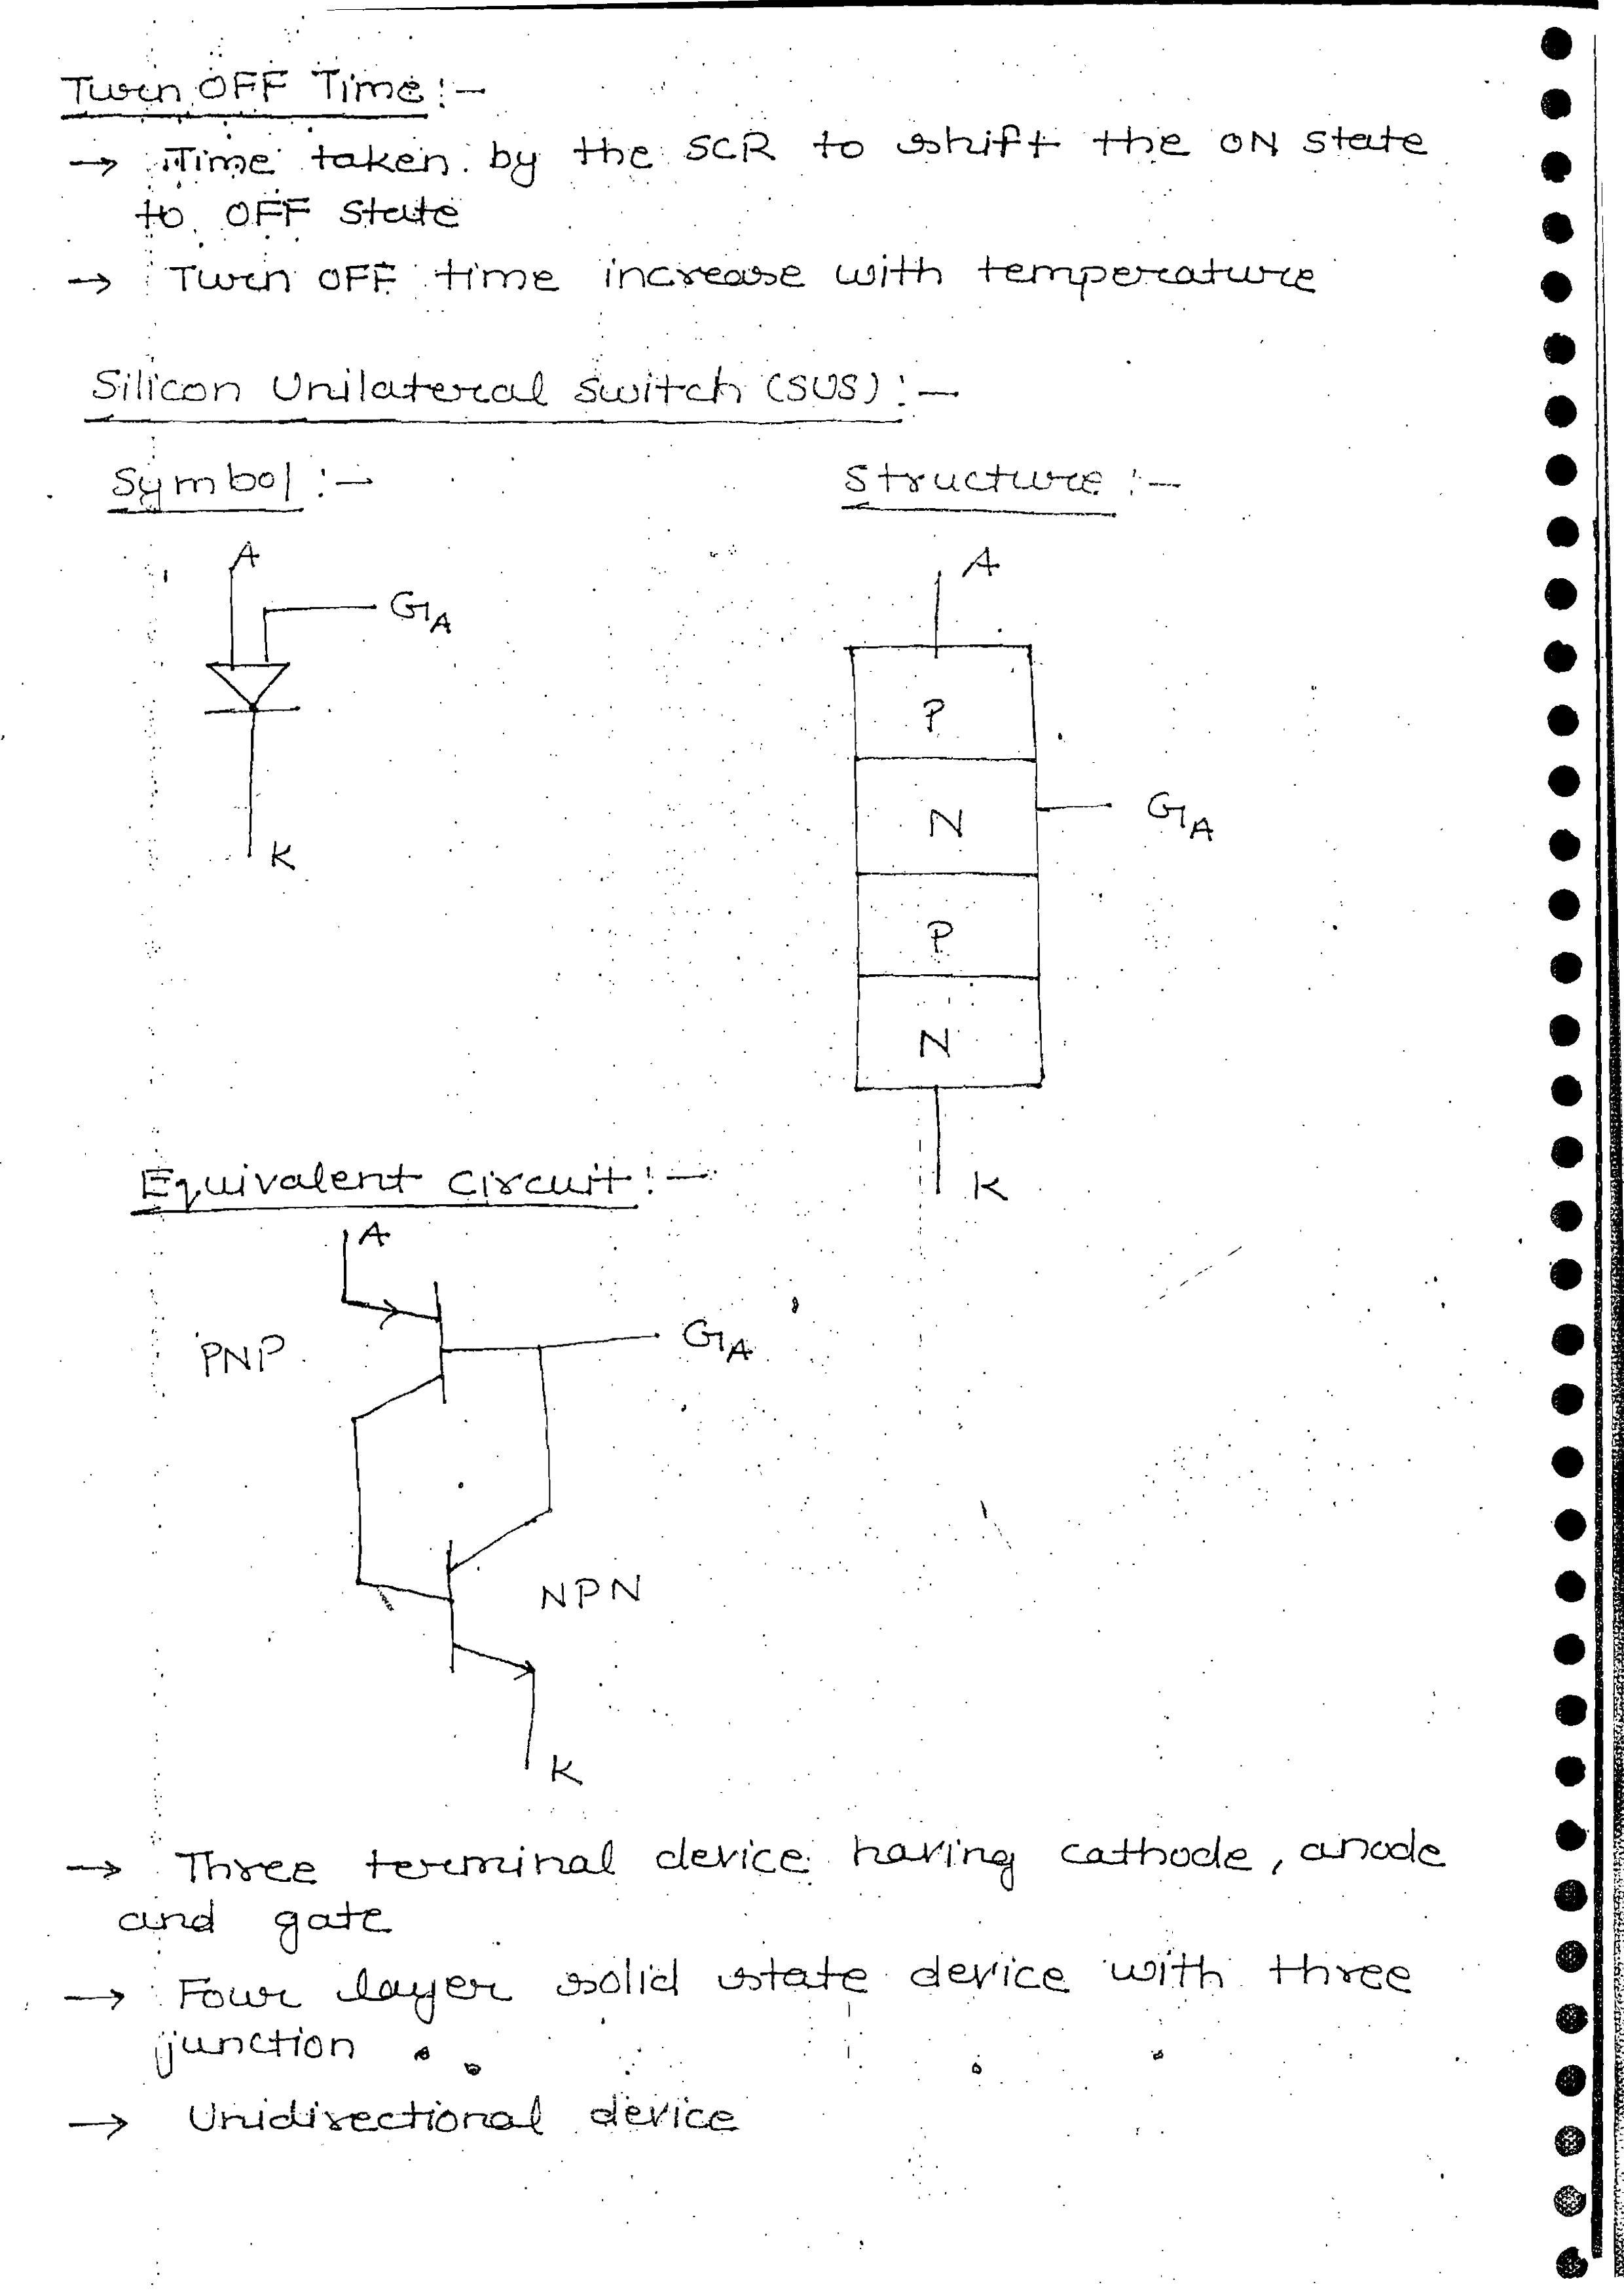 Turn OFF Time :-
→ Time taken by the SCR to shift the ON state
to OFF state
→ Turn OFF time increase with temperature
Silicon Unilateral switch (SUS) :-
Symbol :-
Structure :-
A
G_A
K
A
P
N
G_A
P
N
K
Equivalent circuit :-
A
PNP
G_A
NPN
K
→ Three terminal device having cathode, anode
and gate
→ Four layer solid state device with three
junction
→ Unidirectional device